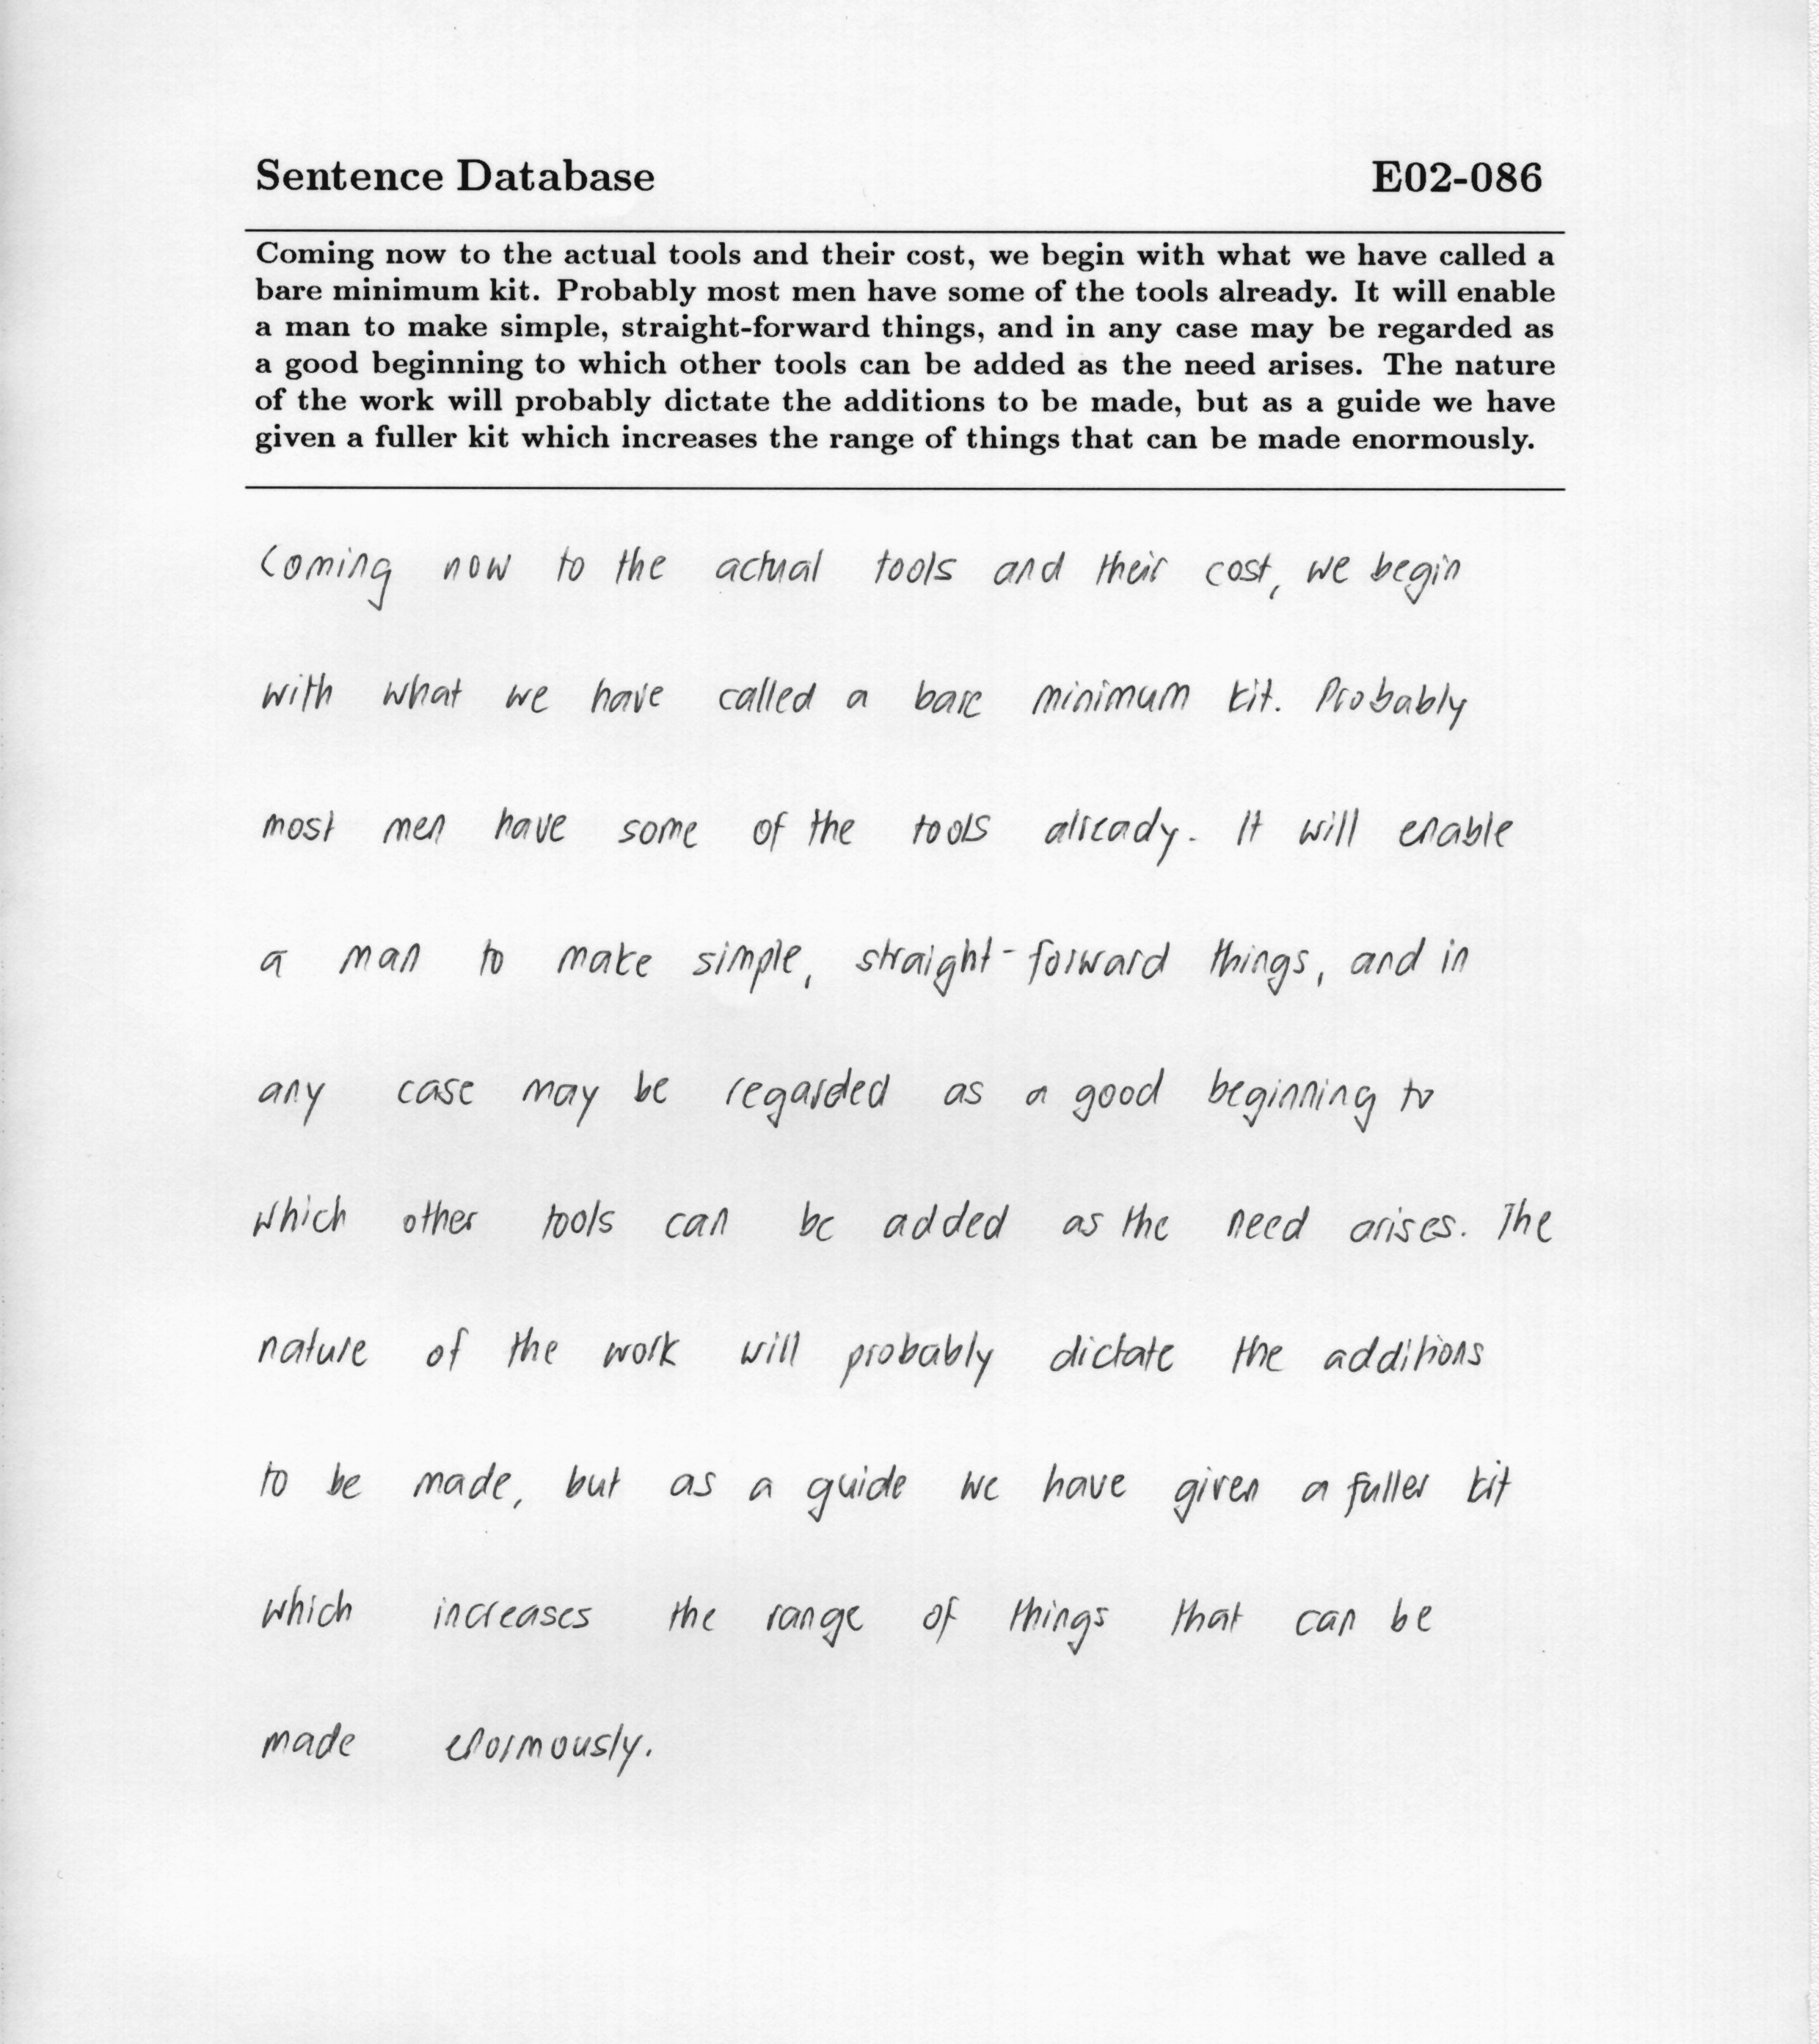 Sentence Database E02-086
Coming now to the actual tools and their cost, we begin with what we have called a
bare minimum kit. Probably most men have some of the tools already. It will enable
a man to make simple, straight-forward things, and in any case may be regarded as
a good beginning to which other tools can be added as the need arises. The nature
of the work will probably dictate the additions to be made, but as a guide we have
given a fuller kit which increases the range of things that can be made enormously.
Coming now to the actual tools and their cost, we begin
with what we have called a bare minimum kit. Probably
most men have some of the tools already. It will enable
a man to make simple, straight-forward things, and in
any case may be regarded as a good beginning to
which other tools can be added as the need arises. The
nature of the work will probably dictate the additions
to be made, but as a guide we have given a fuller kit
which increases the range of things that can be
made enormously.